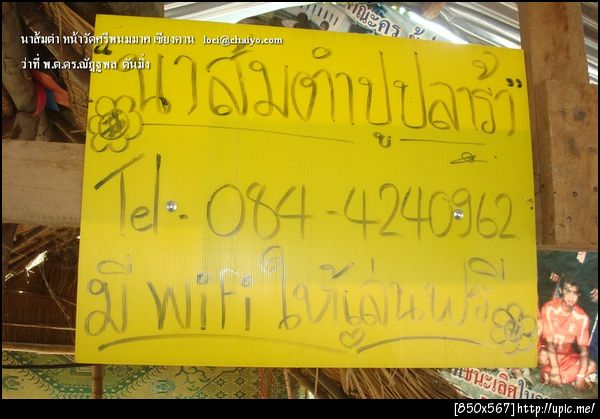 นาส้มตำ หน้าวัดศรีพนมมาศ เชียงคาน loei@chaiyo.com
ว่าที่ พ.ต.ดร.ณัฎฐพล ตันมิ่ง
"นาส้มตำปูปลาร้า"
Tel. 084-4240962
มี wifi ให้เล่นฟรี
[850x567] http://upic.me/